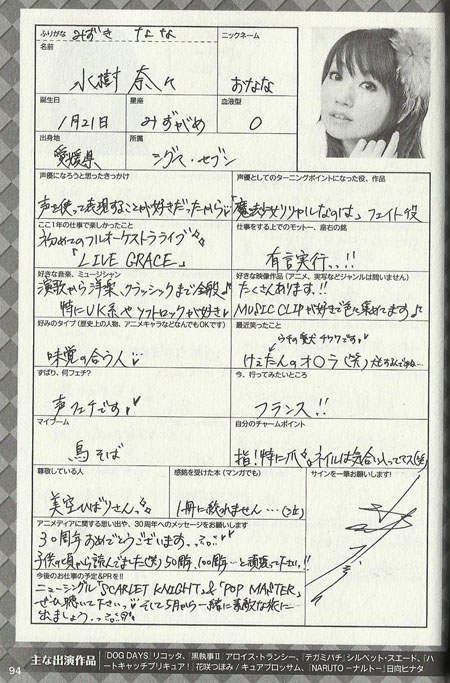 ふりがな みずき なな
ニックネーム
名前
水樹 奈々
おなな
誕生日
星座
血液型
1月21日
みずがめ
O
出身地
所属
愛媛県
シグマ・セブン
声優になろうと思ったきっかけ
声優としてのターニングポイントになった役、作品
声を使って表現することが好きだったから
「魔法少女リリカルなのは」フェイト役
ここ1年の仕事で楽しかったこと
仕事をする上でのモットー、座右の銘
初めてのフルオーケストラライブ
「LIVE GRACE」
有言実行っ!!
好きな音楽、ミュージシャン
好きな映像作品(アニメ、実写などジャンルは問いません)
演歌から洋楽、クラシックまで全般♪
特にUK系やソフトロックが好き
たくさんあります!!
MUSIC CLIPが好きで色々集めてます♪
好みのタイプ(歴史上の人物、アニメキャラなどなんでもOKです)
最近笑ったこと
味覚の合う人
うちの愛犬 チクワです
けぇたんのオ○ラ(笑)
ずばり、何フェチ?
今、行ってみたいところ
声フェチです
フランス!!
マイブーム
自分のチャームポイント
鳥そば
指!特に爪
ネイルは気合い入ってマス(笑)
尊敬している人
感銘を受けた本(マンガでも)
サインを一筆お願いします!
美空ひばりさん
1冊に絞れません…(泣)
アニメディアに関する思い出や、30周年へのメッセージをお願いします
30周年おめでとうございます
子供の頃から読んでました(笑)50周年、100周年…と頑張って下さい!!
今後のお仕事の予定&PRを!!
ニューシングル「SCARLET KNIGHT」&「POP MASTER」
ぜひ聴いて下さいっ そして5月から一緒に素敵な旅に
出ましょう
94
主な出演作品
『DOG DAYS』リコッタ、『黒執事Ⅱ』アロイス・トランシー、『テガミバチ』シルベット・スエード、『ハ
ートキャッチプリキュア!』花咲つぼみ/キュアブロッサム、『NARUTO ーナルトー』日向ヒナタ